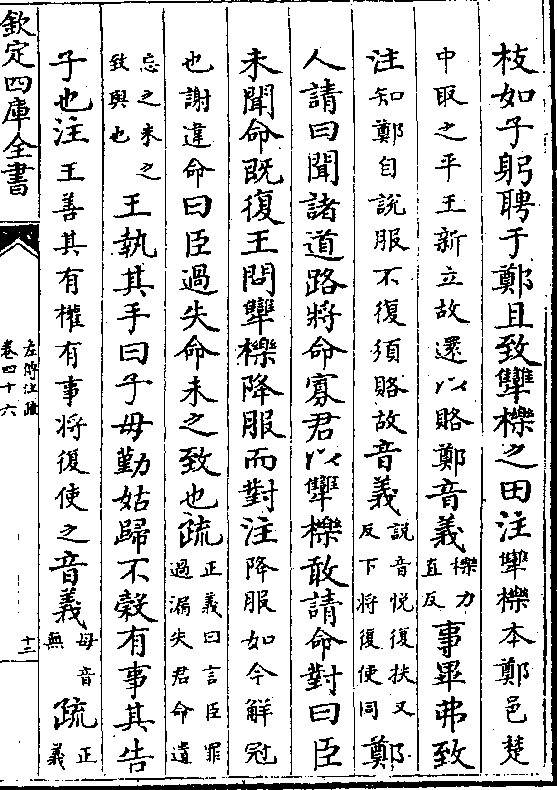 枝如子躬聘于鄭且致犫櫟之田注犫櫟本鄭邑楚
中取之平王新立故還以賂鄭音義櫟力直反事畢弗致
注知鄭自說服不復須賂故音義說音悅復扶又反下將復使同鄭
人請曰聞諸道路將命寡君以犫櫟敢請命對曰臣
未聞命既復王問犫櫟降服而對注降服如今解冠
也謝違命曰臣過失命未之致也疏正義曰言臣罪過漏失君命遺
忘之未之致與也王執其手曰子毋勤姑歸不穀有事其告
子也注王善其有權有事將復使之音義毋音無疏正義
欽定四庫全書
左傳注疏
卷四十六
十二